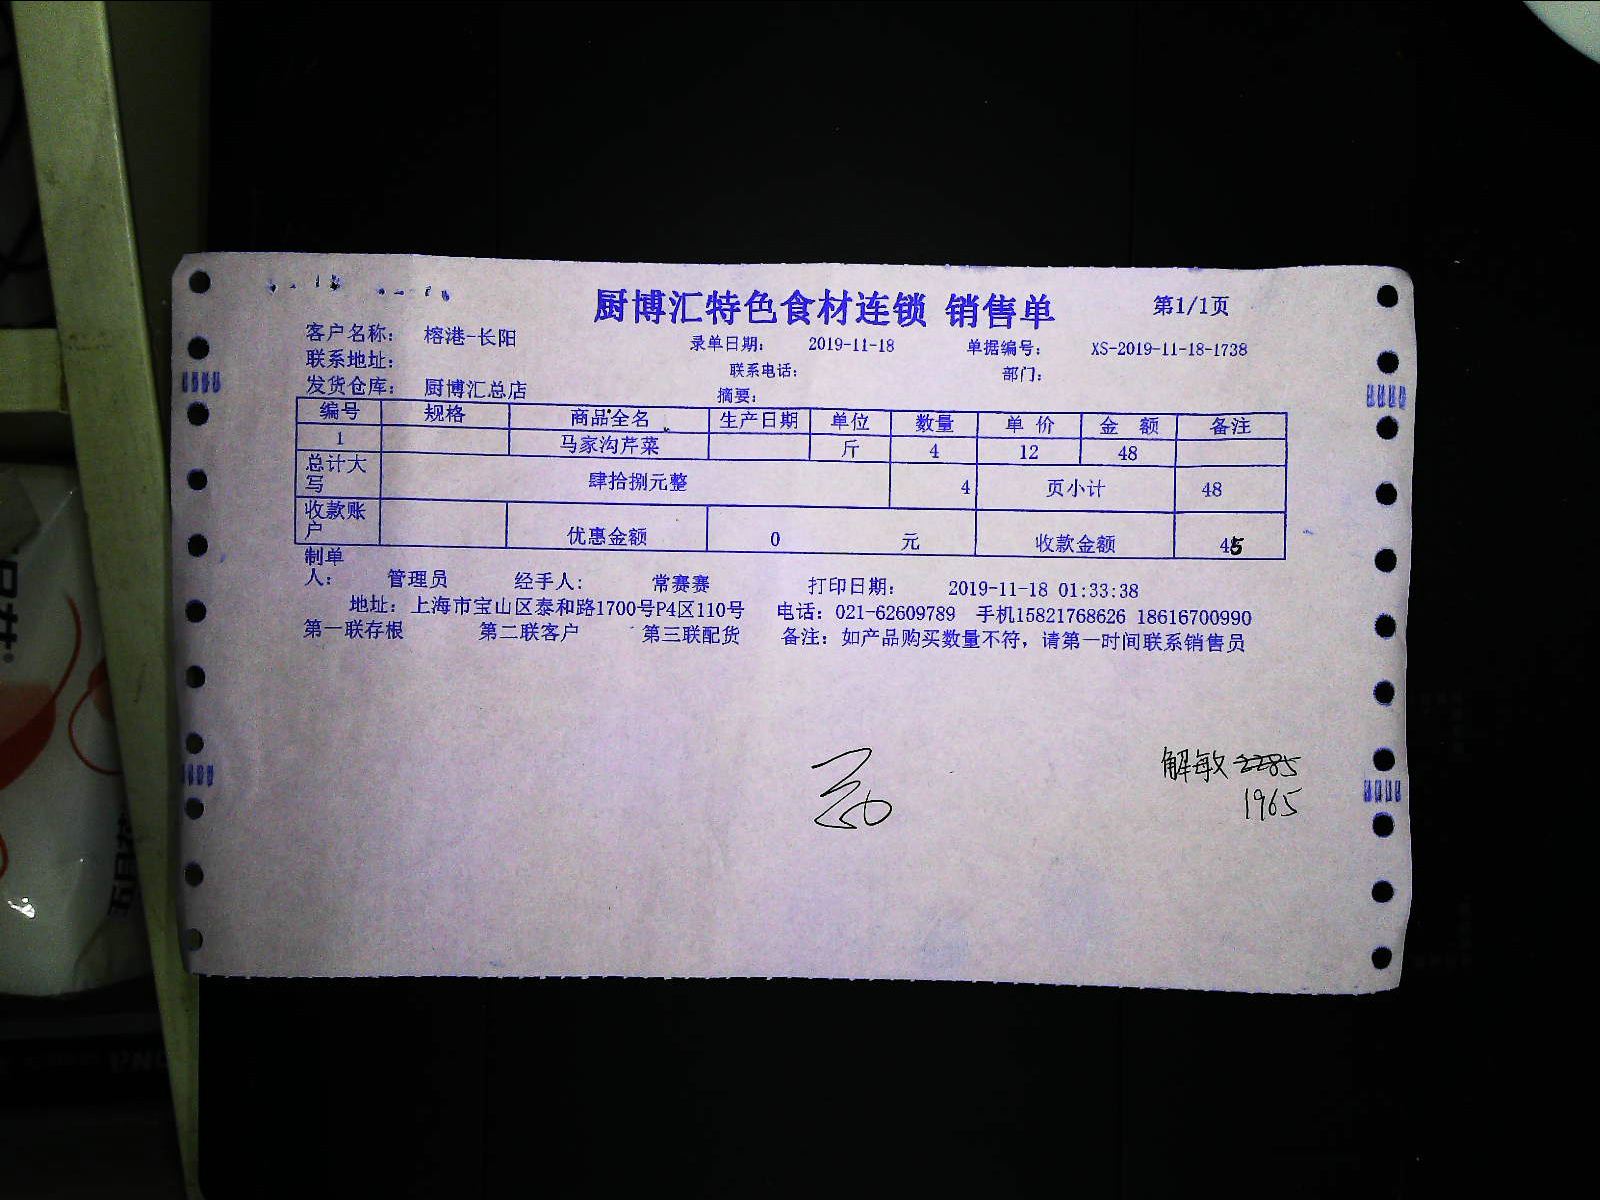 厨博汇特色食材连锁 销售单 第1/1页
客户名称： 榕港-长阳 录单日期： 2019-11-18 单据编号： XS-2019-11-18-1738
联系地址： 联系电话： 部门：
发货仓库： 厨博汇总店 摘要：
编号 规格 商品全名 生产日期 单位 数量 单 价 金 额 备注
1 马家沟芹菜 斤 4 12 48
总计大写 肆拾捌元整 4 页小计 48
收款账户 优惠金额 0 元 收款金额 45
制单人： 管理员 经手人： 常赛赛 打印日期： 2019-11-18 01:33:38
地址：上海市宝山区泰和路1700号P4区110号 电话：021-62609789 手机15821768626 18616700990
第一联存根 第二联客户 第三联配货 备注：如产品购买数量不符，请第一时间联系销售员
解敏 2285
1965